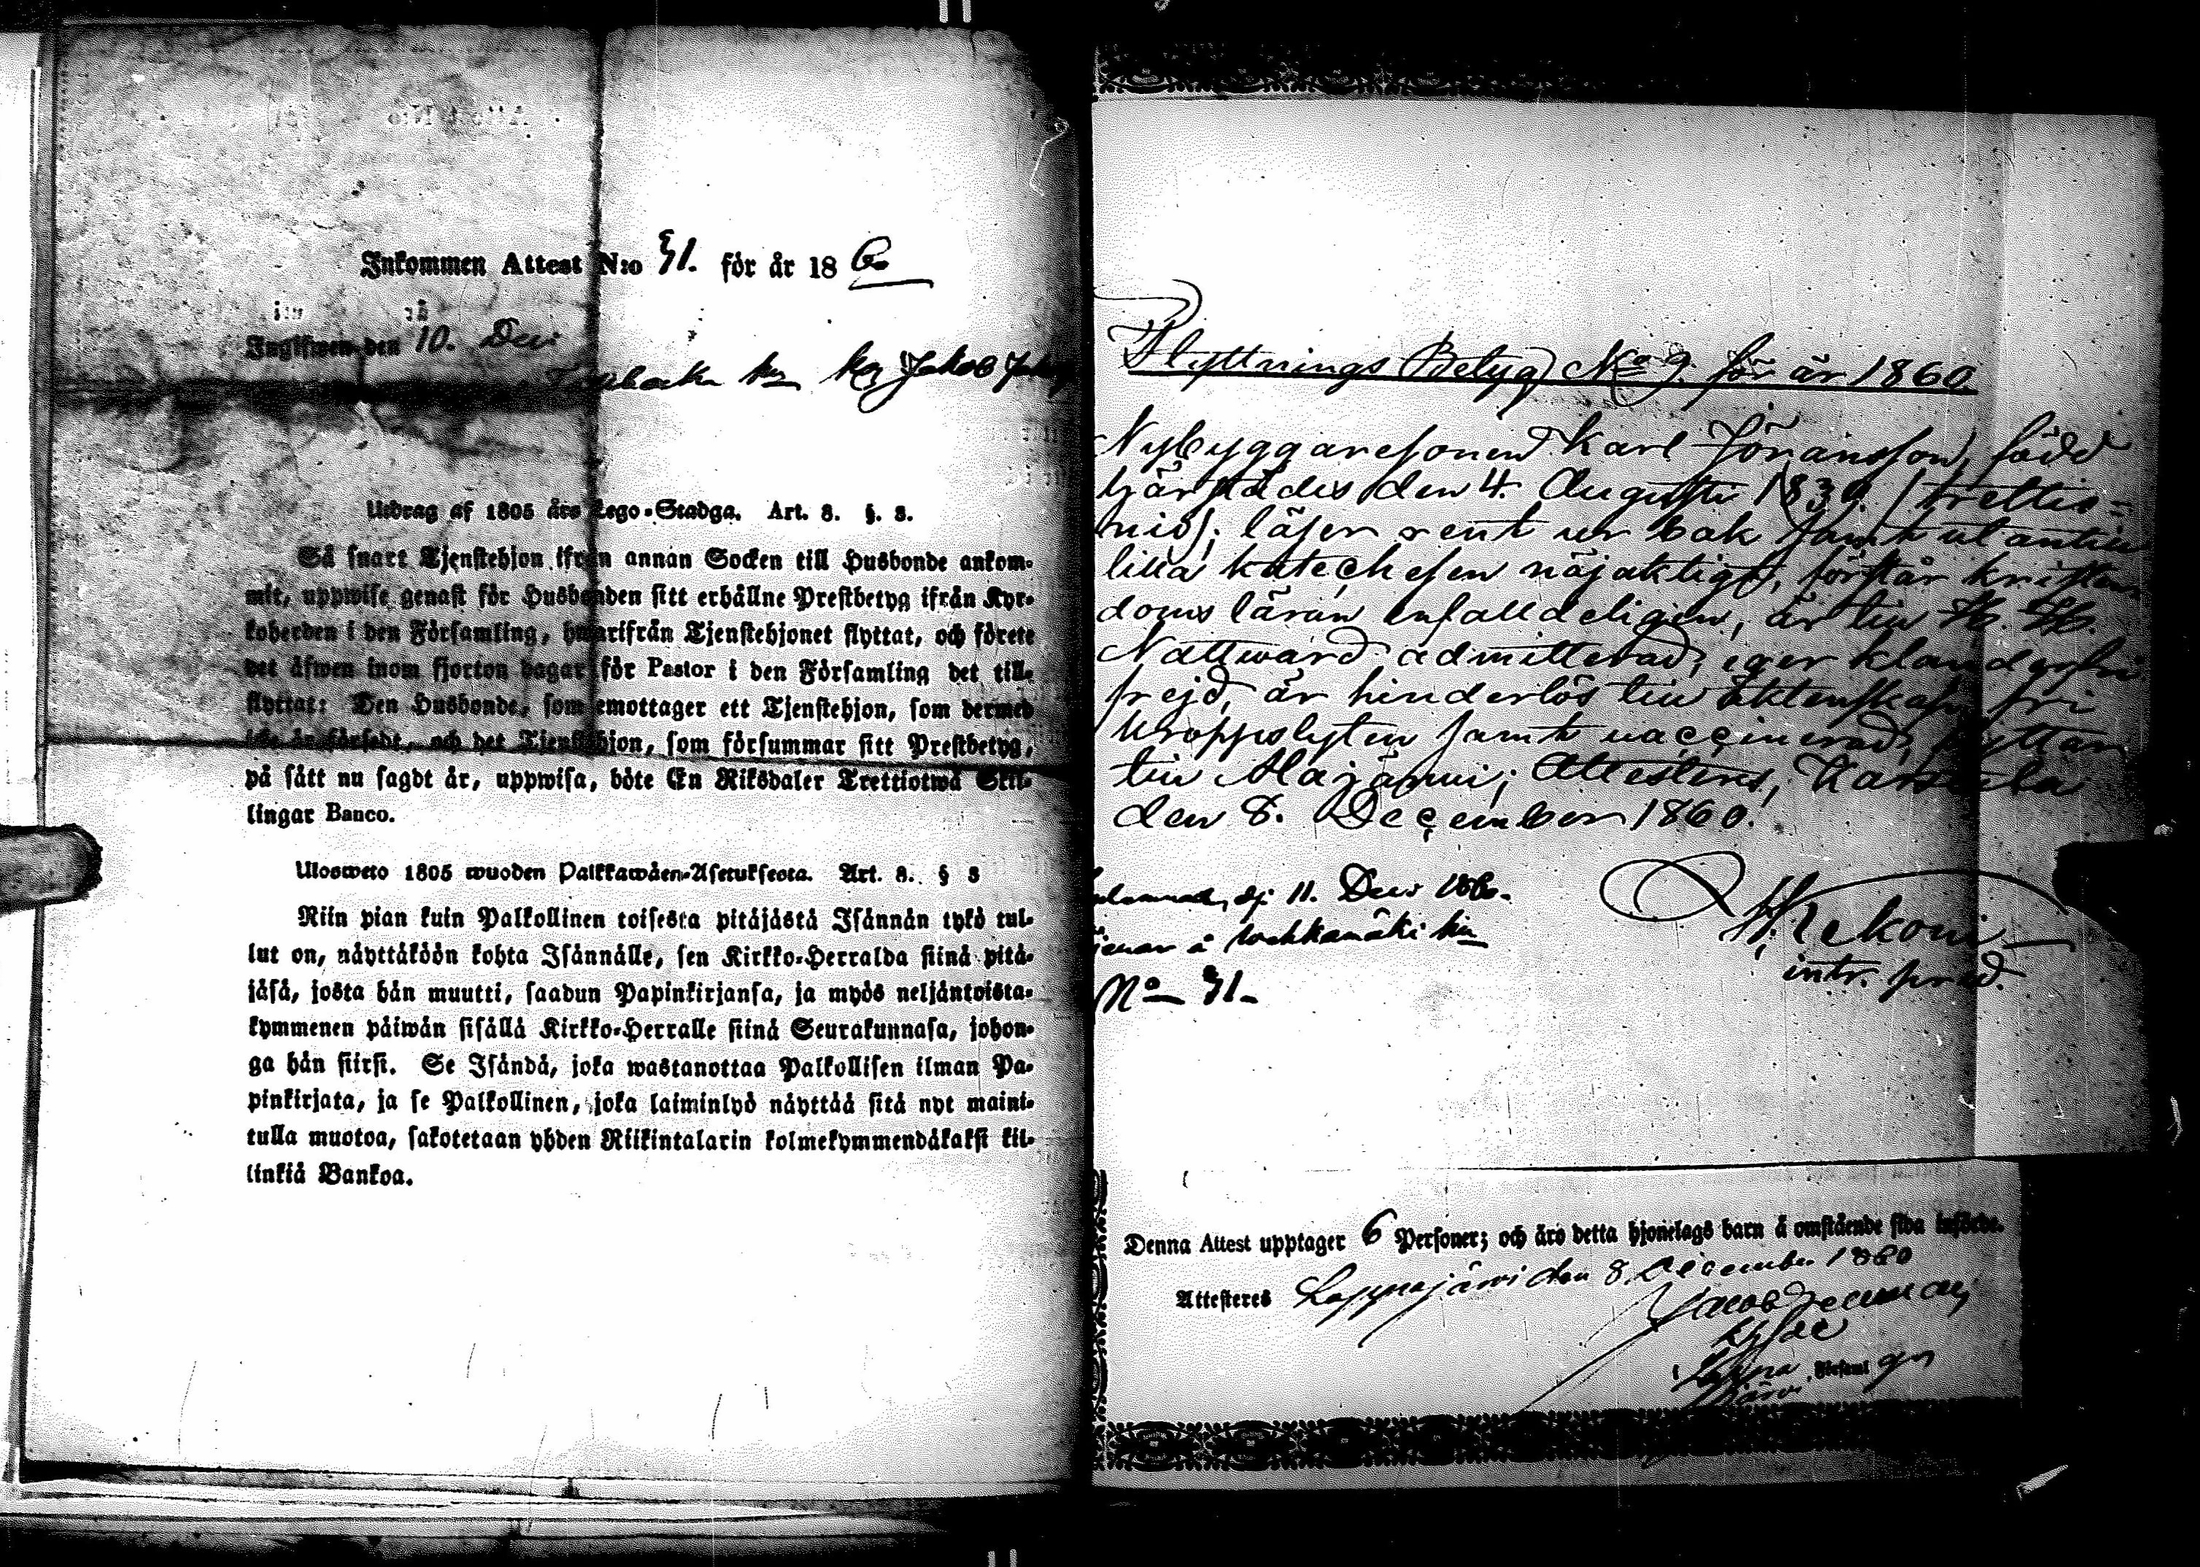 Inkommen Attest N:o 71. för år 1860
Ingifwen den 10. Decr
Jakob
Utdrag af 1805 års Lego-Stadga. Art. 8. §. 3.
Så snart Tjenstehjon ifrån annan Socken till Husbonde ankom-
mit, uppwise genast för Husbonden sitt erhållne Prestbetyg ifrån Kyr-
koherden i den Församling, hwarifrån Tjenstehjonet flyttat, och förete
det äfwen inom fjorton dagar för Pastor i den Församling det till-
flyttat: Den Husbonde, som emottager ett Tjenstehjon, som dermed
icke är försedt, och det Tjenstehjon, som försummar sitt Prestbetyg,
på sätt nu sagdt är, uppwisa, böte En Riksdaler Trettiotwå Skil-
lingar Banco.
Ulosweto 1805 wuoden Palkkawäen-Asetuksesta. Art. 8. § 3
Niin pian kuin Palkollinen toisesta pitäjästä Isännän tykö tul-
lut on, näyttäköön kohta Isännälle, sen Kirkko-Herralda siinä pitä-
jäsä, josta hän muutti, saadun Papinkirjansa, ja myös neljäntoista-
kymmenen päiwän sisällä Kirkko-Herralle siinä Seurakunnasa, johon-
ga hän siirsi. Se Isändä, joka wastanottaa Palkollisen ilman Pa-
pinkirjata, ja se Palkollinen, joka laiminlyö näyttää sitä nyt maini-
tulla muotoa, sakotetaan yhden Riikintalarin kolmekymmendäkaksi kil-
linkiä Bankoa.
Flyttnings Betyg No 9. för år 1860.
Nybyggaresonen Karl Jöransson, född
härstädes den 4. Augusti 1830. (trettio=
nio); läser rent ur bok samt utantill
lilla katechesen nöjaktigt, förstår kristen
doms läran enfalldeligen, är till H. H.
Nattward admitterad, eger klanderfri
frejd, är hinderlös till äktenskap, fri
kroppslyten samt vaccinerad, flyttar
till Alajärwi; Attesteras, Karstula
den 8. December 1860.
11. Decr 1860.
å
No 71.
intr. pred.
Denna Attest upptager 6 Personer; och äro detta hjonelags barn å omstående sida införde.
Attesteras Lappajärwi den 8. December 1860
Jacob
Lappa
järwi Församl